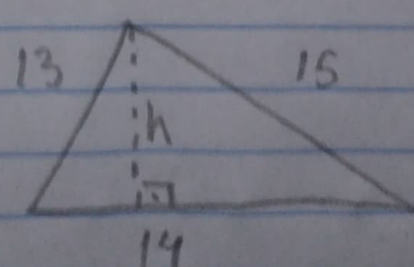 13 15
h
14